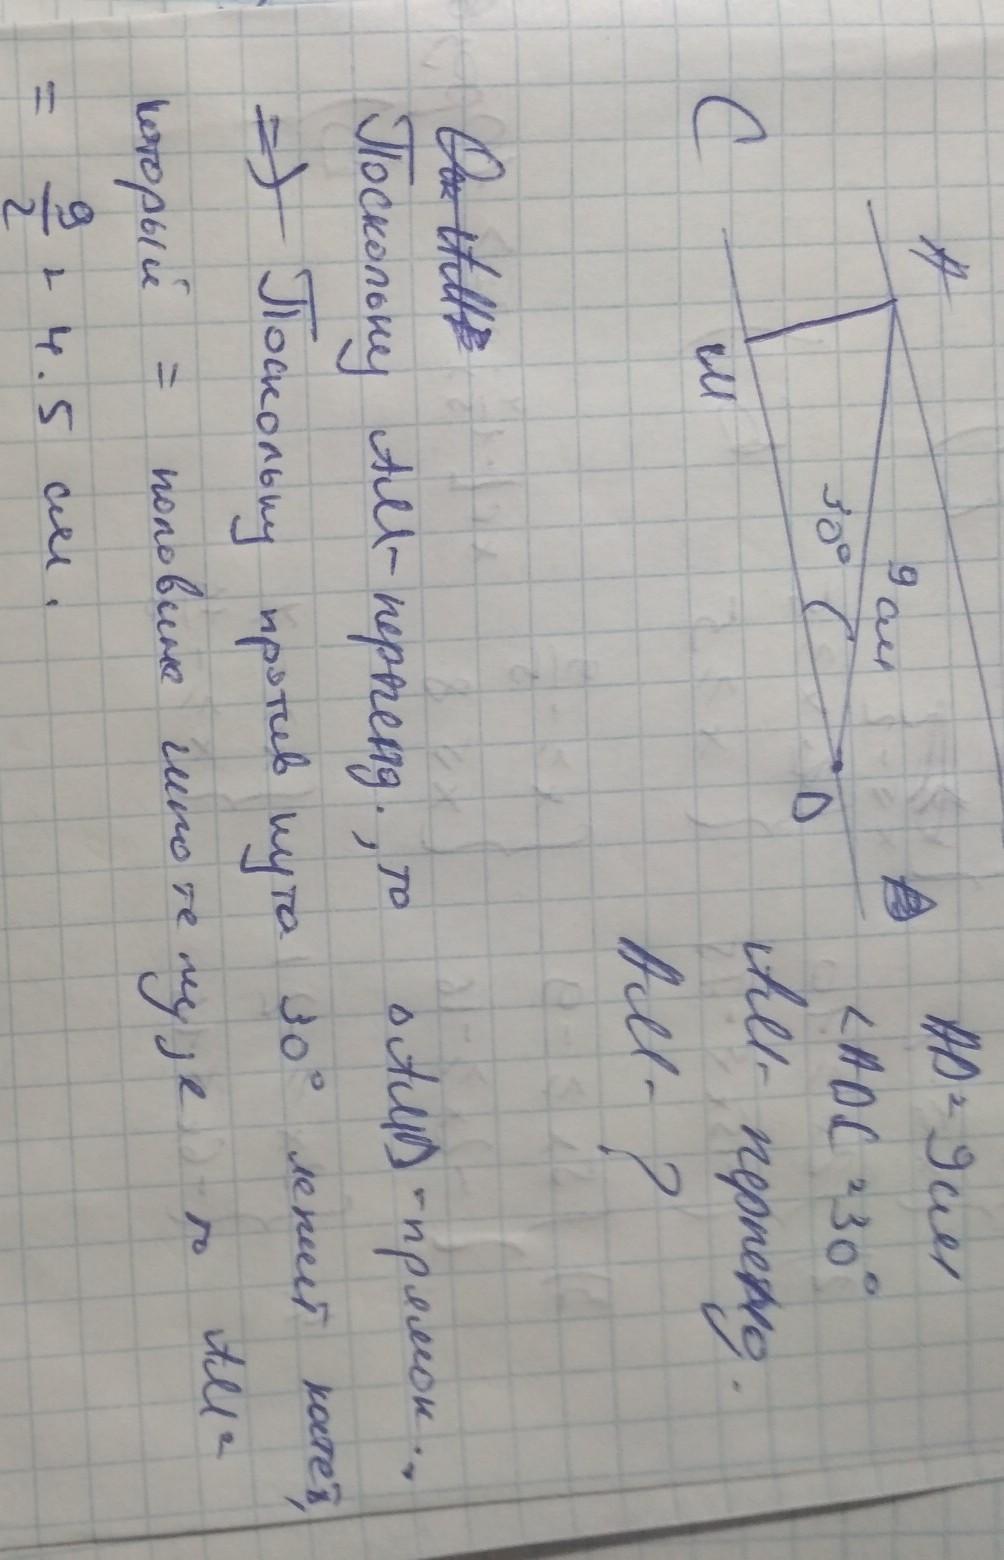 A
C
M
30°
9 см
D
AD = 9 см
<ADC = 30°
AM - перпенд.
AM - ?
Поскольку AM - перпенд., то △AMD - прямоуг.,
=> Поскольку против кута 30° лежит катет,
который = половине гипотенузе то AM =
= 9/2 = 4.5 см.